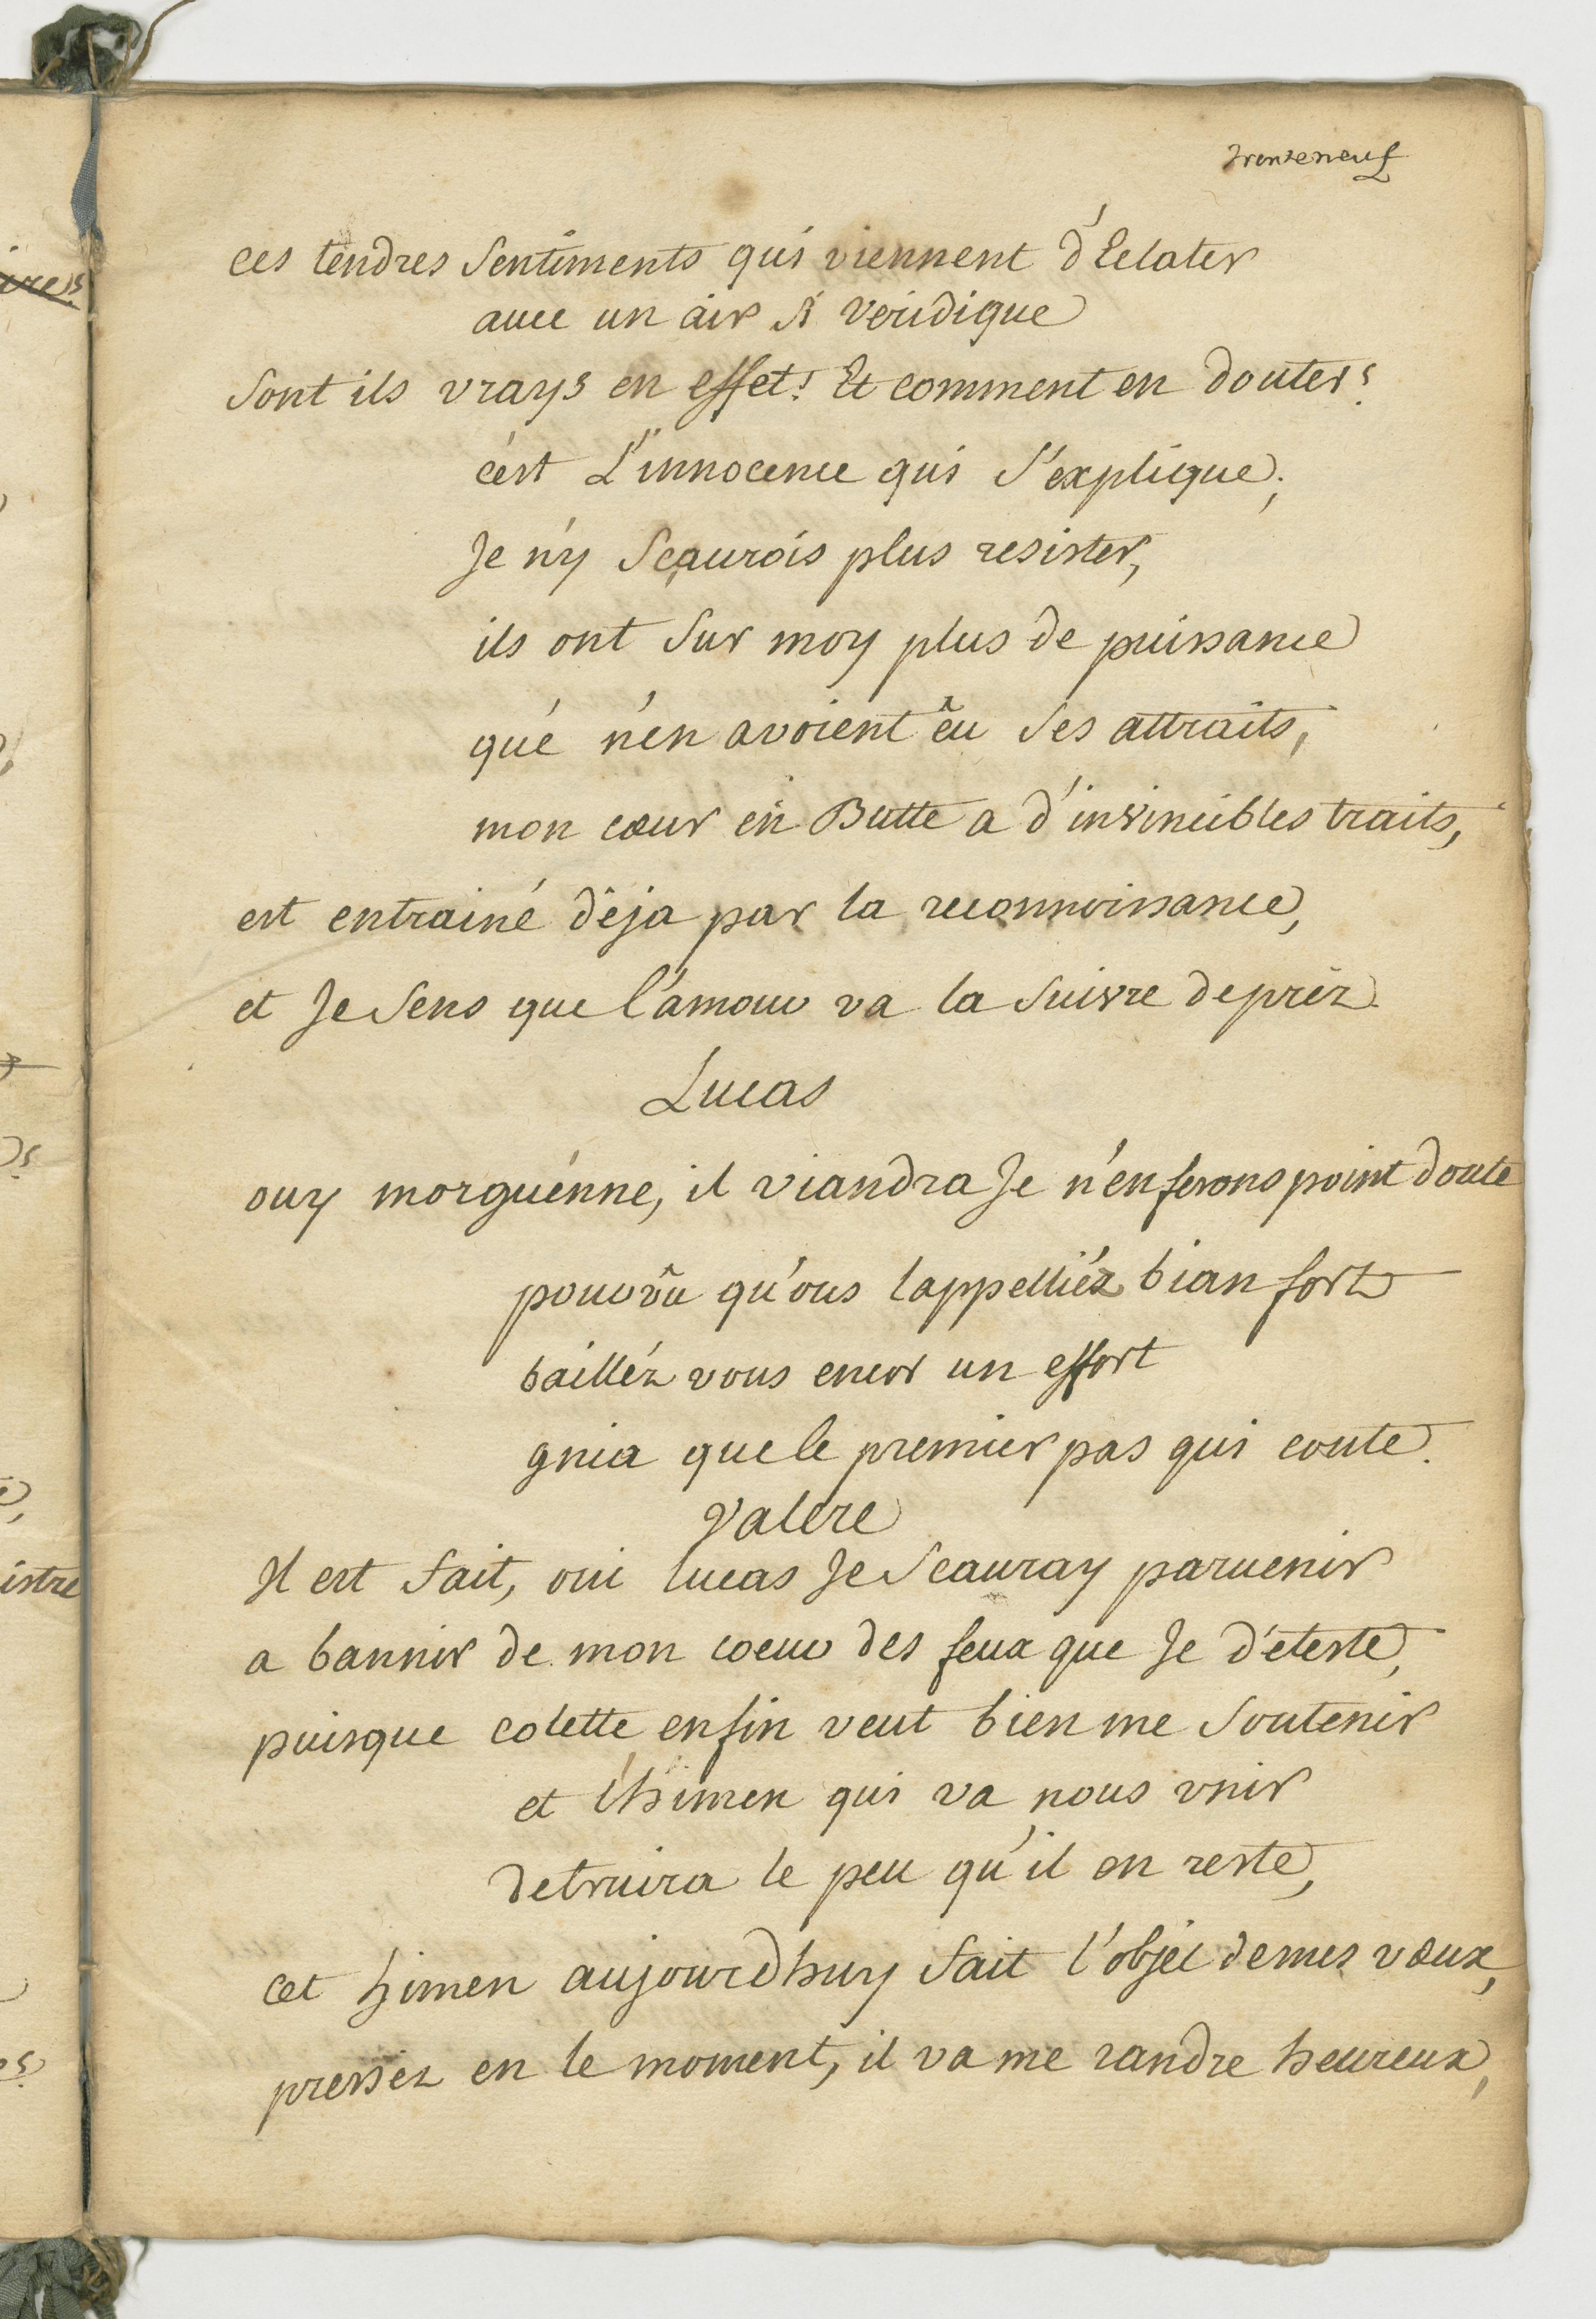 trenteneuf
ces tendres Sentiments qui viennent d'Eclater
avec un air si veridique
Sont ils vrays en effet! Et comment en douter?
c'est L'innocence qui S'explique;
Je n'y Scaurois plus resister,
ils ont Sur moy plus de puissance
que n'en avoient êu Ses attraits,
mon cœur en Butte a d'invincibles traits,
est entrainé déja par la reconnoissance,
et Je Sens que l'amour va la Suivre de prèz.
Lucas
ouy morguénne, il viandra Je n'en ferons point doute
pourvû qu'ous lappelliéz bian fort
bailléz vous encor un effort
gnia que le premier pas qui coute.
Valere
Il est fait, oui lucas Je Scauray parvenir
a bannir de mon coeur des feux que Je d'eteste,
puisque colette enfin veut bien me Soutenir
et l'himen qui va nous vnir
detruira le peu qu'il en reste,
cet himen aujourdhuy fait l'objet de mes vœux,
pressez en le moment, il va me randre heureux,
istre